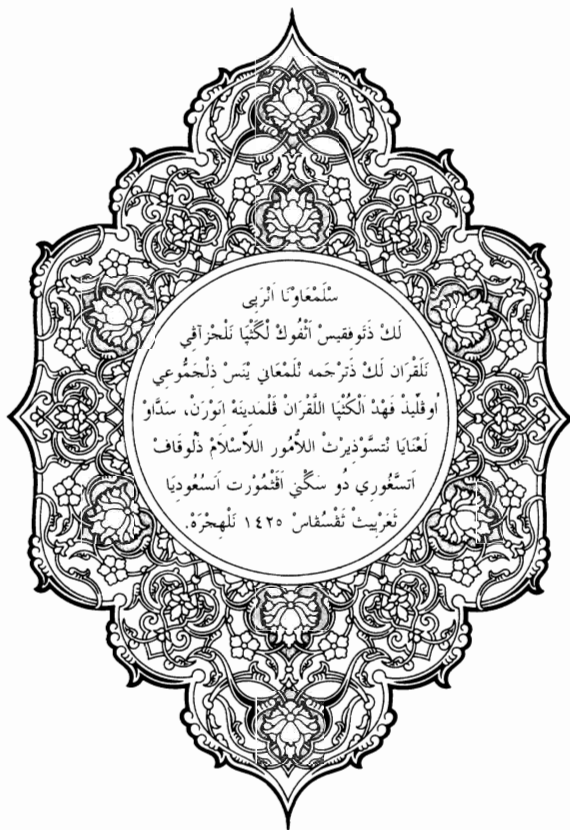 سْلَمْعَاوْنَا اَنْرَبِى
لَكْ ذَتّوفِقيسْ اَتْفُوكْ لْكَتْبَا نَلْجْزآفِي
نَلَقْرَان لَكْ ذَتَرْجَمه نْلَمْعَاني يْنَسْ ذِلْجَمُّوعي
اُوڤَلّيذْ فَهْدْ اَلْكُتْبَا اللَّقْرَان ڤلْمَدينَة اِنوَرَنْ، سَدَّاوْ
لَعْنَايَا نْتسوّذيرْثْ اللاُّمُور اللاَّسْلاَمْ ذلُوقَافْ
اَتسَّغُورِي دُو سَكَّنِي اَڤثمُوْرت اَنسْعُوديَا
تَعْرَبِيثْ ثَڤْسُڤَاسْ ١٤٢٥ نَلْهِجْرَةْ.